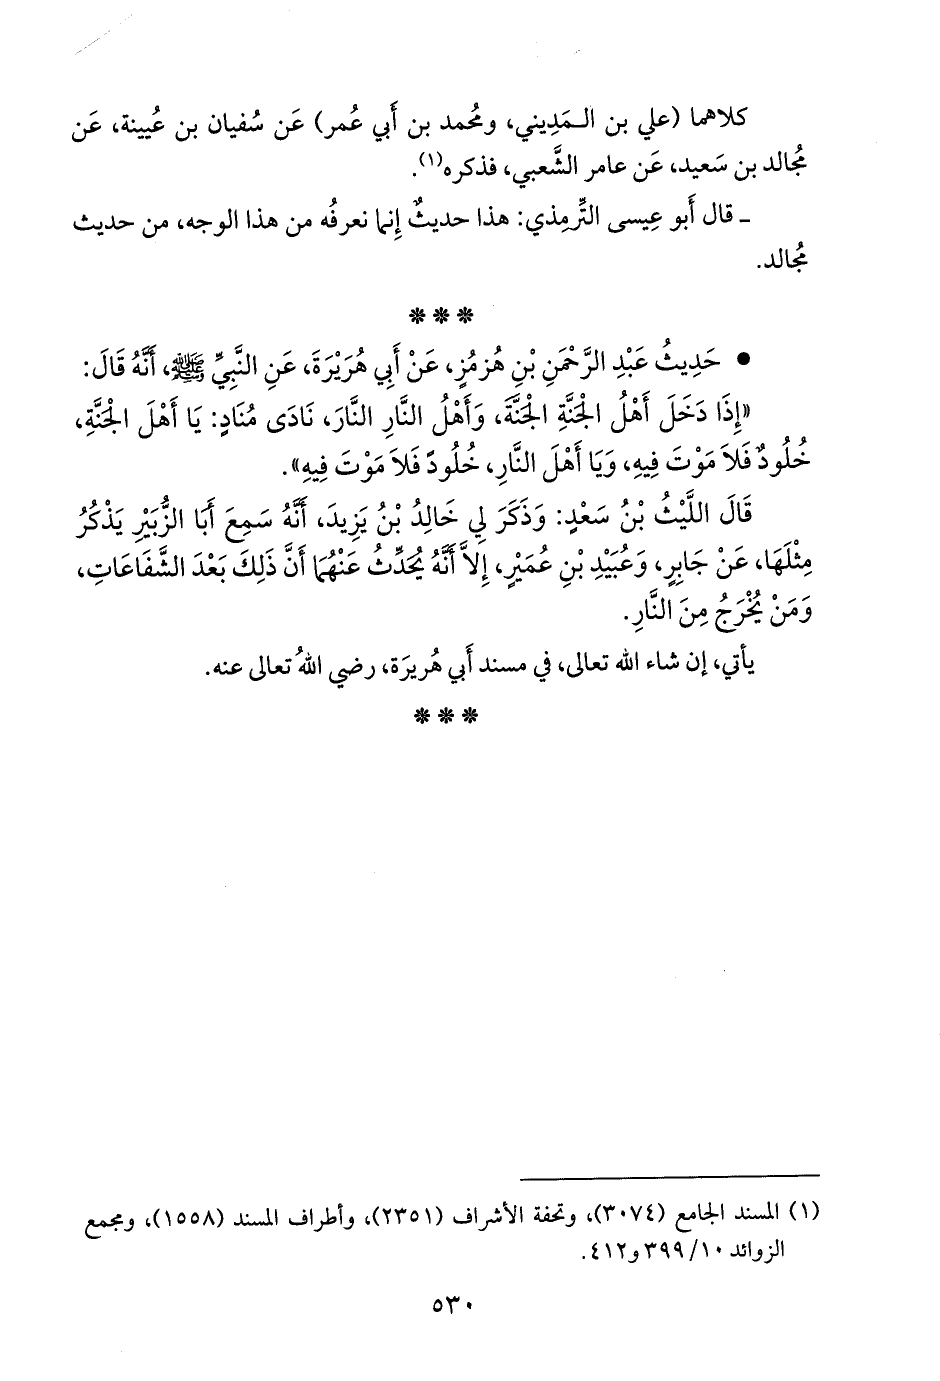 كلاهما (علي بن الـمَدِيني، ومُحمد بن أَبي عُمر) عَن سُفيان بن عُيينة، عَن
مُجالد بن سَعيد، عَن عامر الشَّعبي، فذكره(١).
ـ قال أَبو عِيسى التِّرمِذي: هذا حديثٌ إِنما نعرفُه من هذا الوجه، من حديث
مُجالد.
* * *
• حَدِيثُ عَبْدِ الرَّحْمَنِ بْنِ هُرْمُزٍ، عَنْ أَبِي هُرَيْرَةَ، عَنِ النَّبِيِّ ﷺ، أَنَّهُ قَالَ:
«إِذَا دَخَلَ أَهْلُ الْجَنَّةِ الْجَنَّةَ، وَأَهْلُ النَّارِ النَّارَ، نَادَى مُنَادٍ: يَا أَهْلَ الْجَنَّةِ،
خُلُودٌ فَلاَ مَوْتَ فِيهِ، وَيَا أَهْلَ النَّارِ، خُلُودٌ فَلاَ مَوْتَ فِيهِ».
قَالَ اللَّيْثُ بْنُ سَعْدٍ: وَذَكَرَ لِي خَالِدُ بْنُ يَزِيدَ، أَنَّهُ سَمِعَ أَبَا الزُّبَيْرِ يَذْكُرُ
مِثْلَهَا، عَنْ جَابِرٍ، وَعُبَيْدِ بْنِ عُمَيْرٍ، إِلاَّ أَنَّهُ يُحَدِّثُ عَنْهُمَا أَنَّ ذَلِكَ بَعْدَ الشَّفَاعَاتِ،
وَمَنْ يُخْرَجُ مِنَ النَّارِ.
يأتي، إن شاء الله تعالى، في مسند أَبي هُريرَة، رضي اللهُ تعالى عنه.
* * *
(١) المسند الجامع (٣٠٧٤)، وتحفة الأشراف (٢٣٥١)، وأطراف المسند (١٥٥٨)، ومجمع
الزوائد ١٠/ ٣٩٩ و٤١٢.
٥٣٠